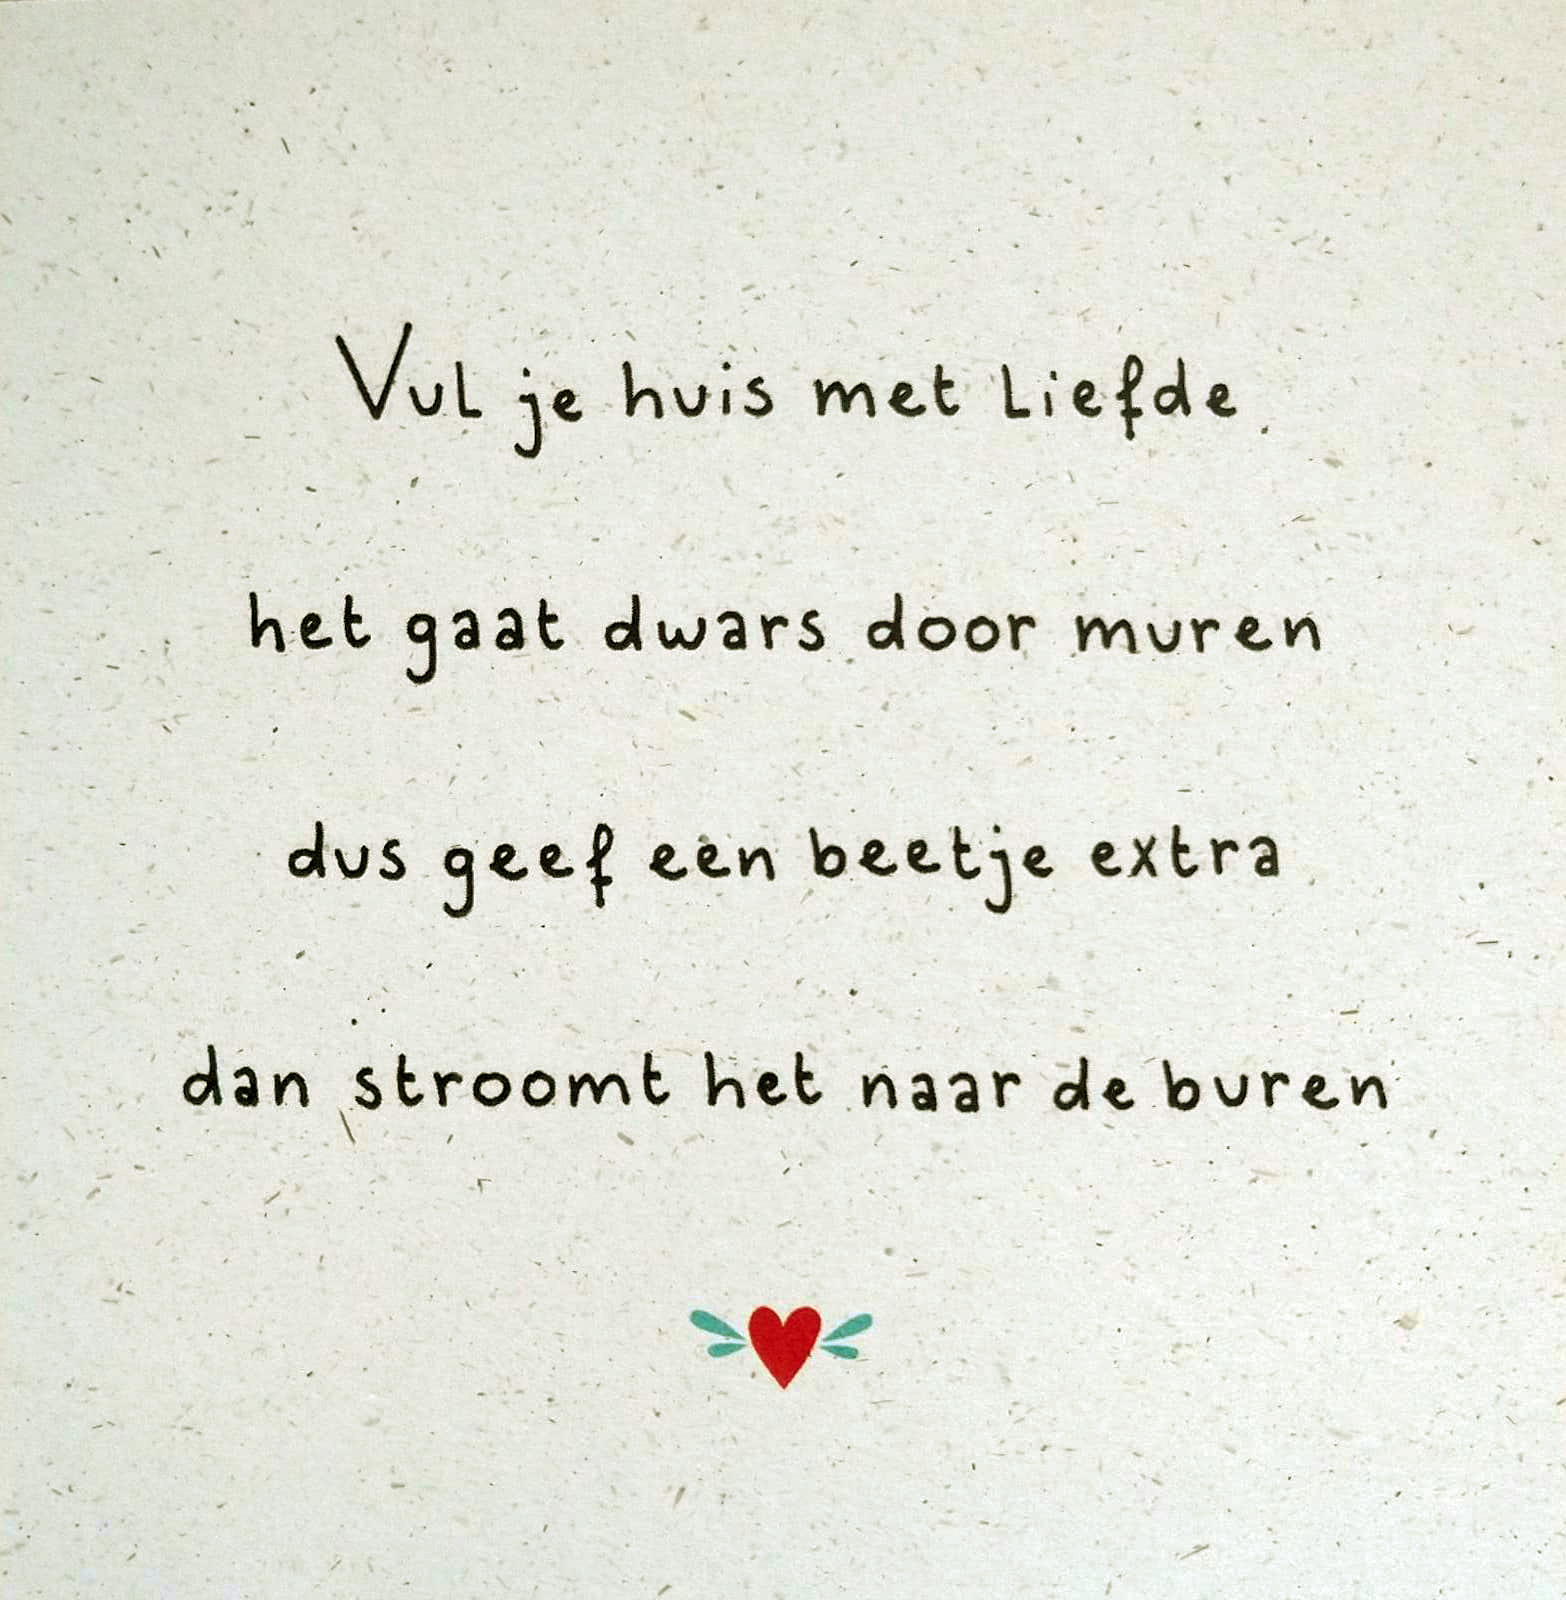 Vul je huis met liefde
het gaat dwars door muren
dus geef een beetje extra
dan stroomt het naar de buren